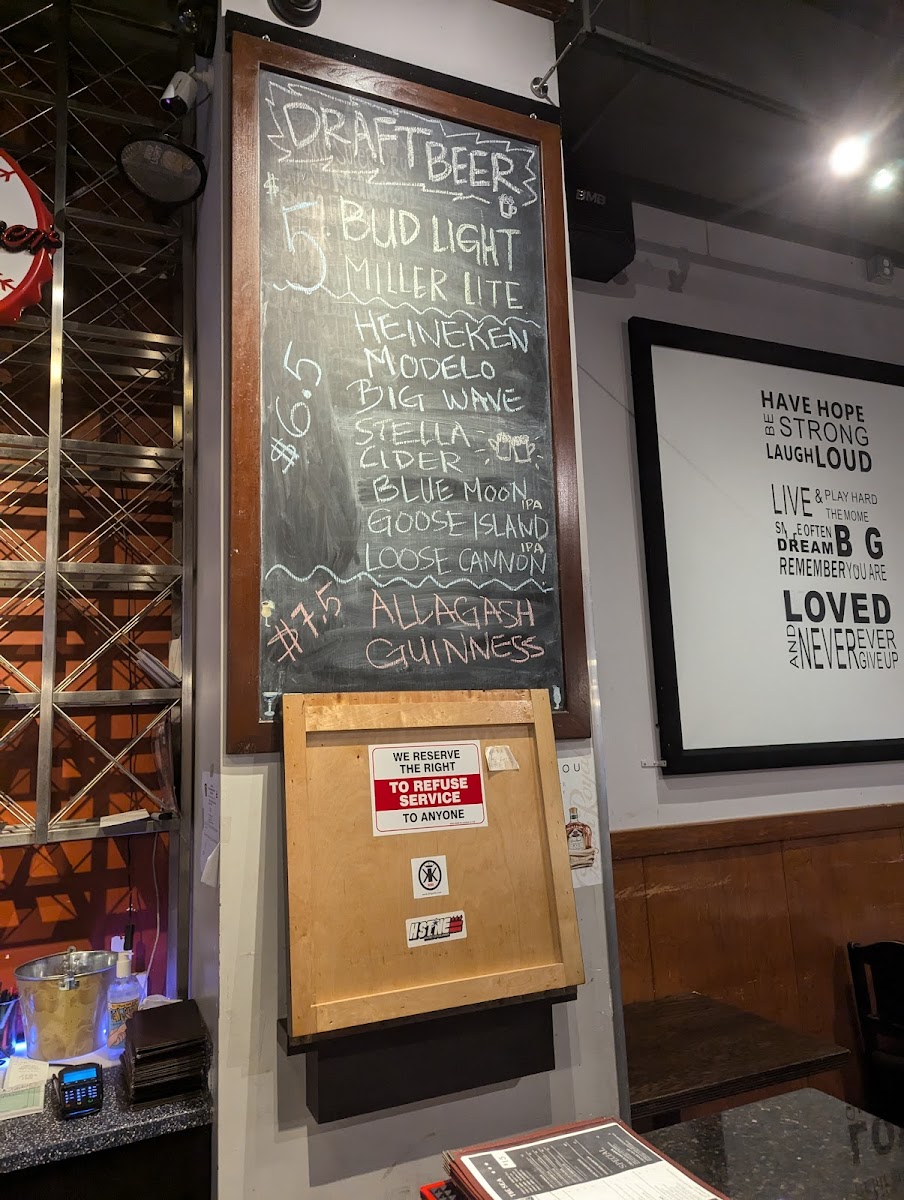 DRAFT BEER
$5
BUD LIGHT
MILLER LITE
$6.5
HEINEKEN
MODELO
BIG WAVE
STELLA
CIDER
BLUE MOON
GOOSE ISLAND IPA
LOOSE CANNON IPA
$7.5
ALLAGASH
GUINNESS
WE RESERVE
THE RIGHT
TO REFUSE
SERVICE
TO ANYONE
BMB
HAVE HOPE
BE STRONG
LAUGH LOUD
LIVE & PLAY HARD
THE MOME
OFTEN
DREAM B G
REMEMBER YOU ARE
LOVED
AND NEVER EVER
GIVE UP
OU
SPECIAL